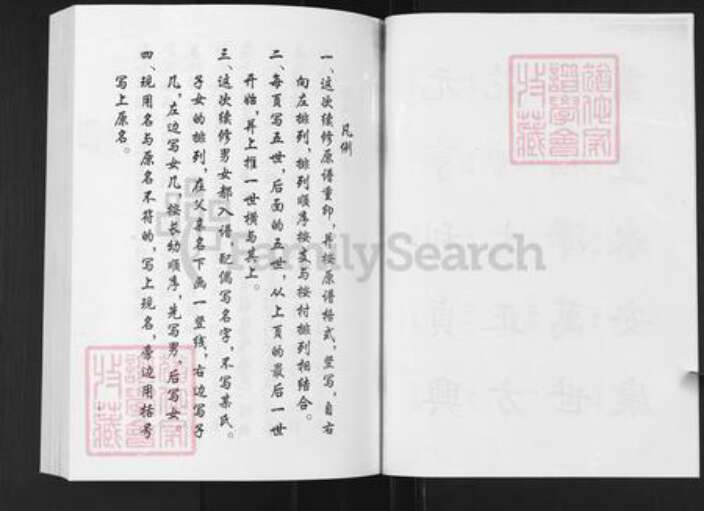 凡例
一、这次续修原谱重印,并按原谱格式,竖写,自右
向左排列,排列顺序按支与按村排列相结合。
二、每页写五世,后面的五世,从上页的最后一世
开始,并上推一世横与其上。
三、这次续修男女都入谱,配偶写名字,不写某氏。
子女的排列,在父亲名下画一竖线,右边写子
几,左边写女几,按长幼顺序,先写男,后写女。
四、现用名与原名不符的,写上现名,旁边用括号
写上原名。
FamilySearch